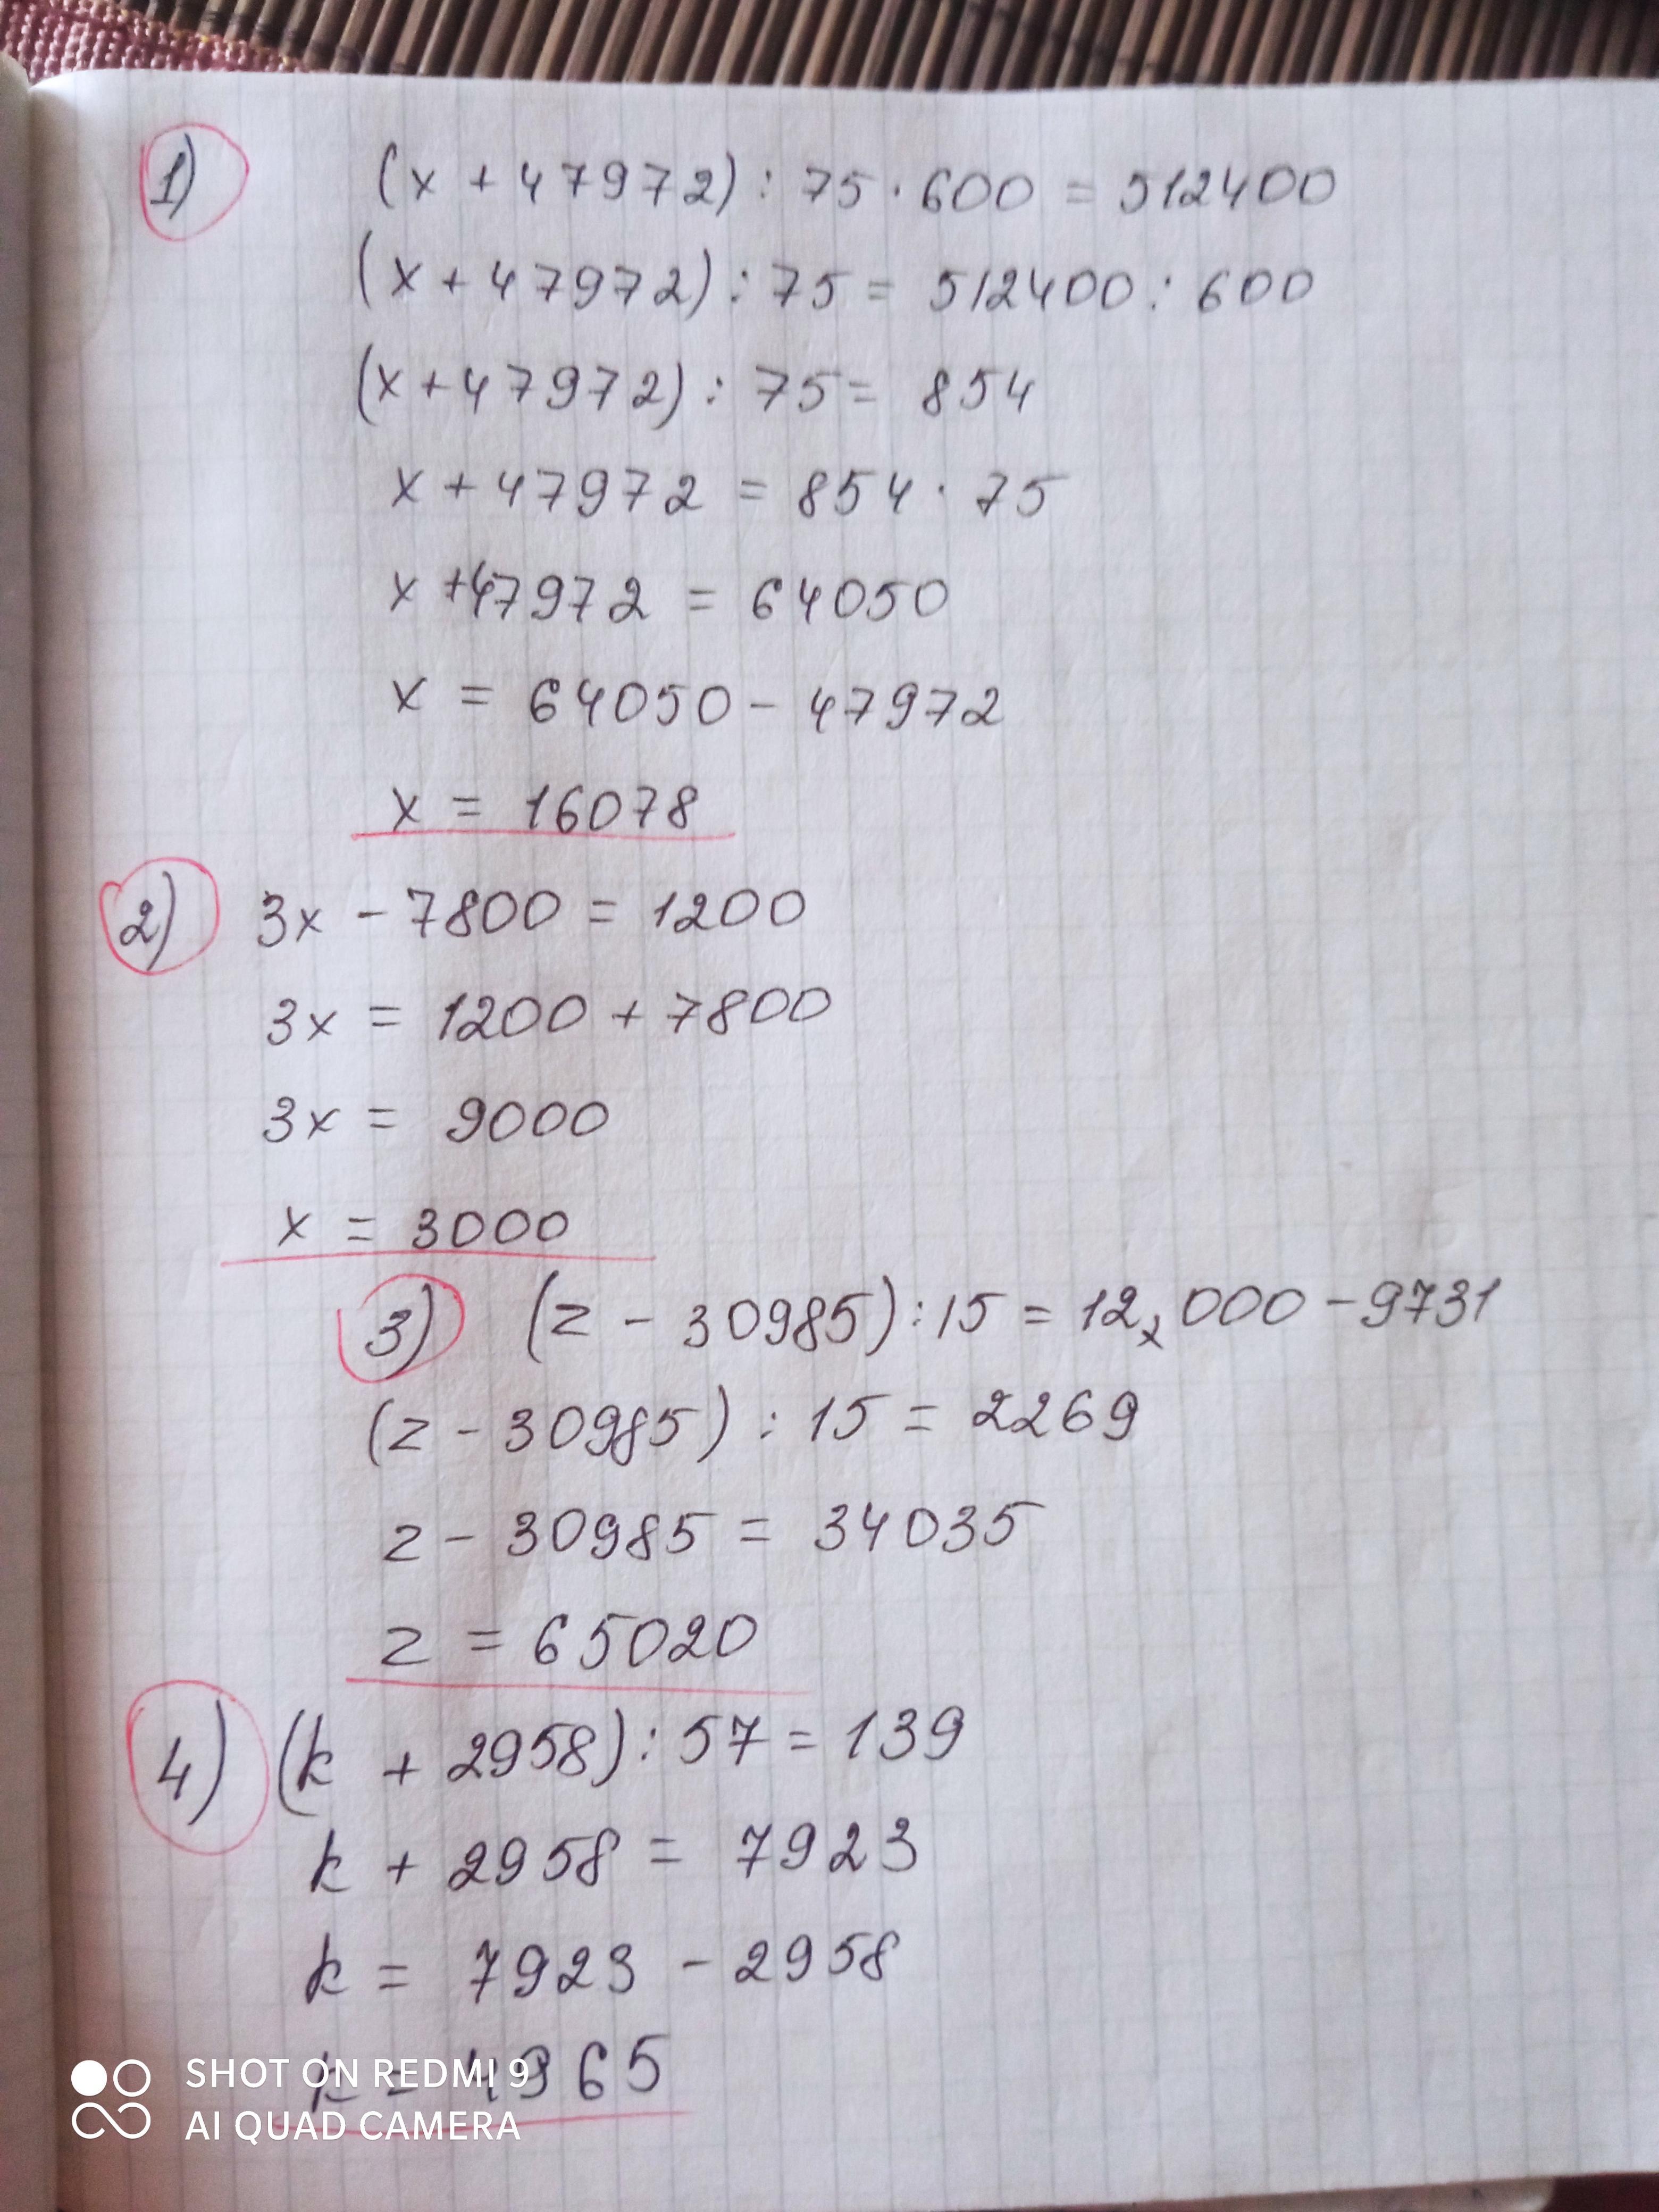 1) (x + 47972) : 75 · 600 = 512400
(x + 47972) : 75 = 512400 : 600
(x + 47972) : 75 = 854
x + 47972 = 854 · 75
x + 47972 = 64050
x = 64050 - 47972
x = 16078
2) 3x - 7800 = 1200
3x = 1200 + 7800
3x = 9000
x = 3000
3) (z - 30985) : 15 = 12 000 - 9731
(z - 30985) : 15 = 2269
z - 30985 = 34035
z = 65020
4) (k + 2958) : 57 = 139
k + 2958 = 7923
k = 7923 - 2958
k = 4965
SHOT ON REDMI 9
AI QUAD CAMERA